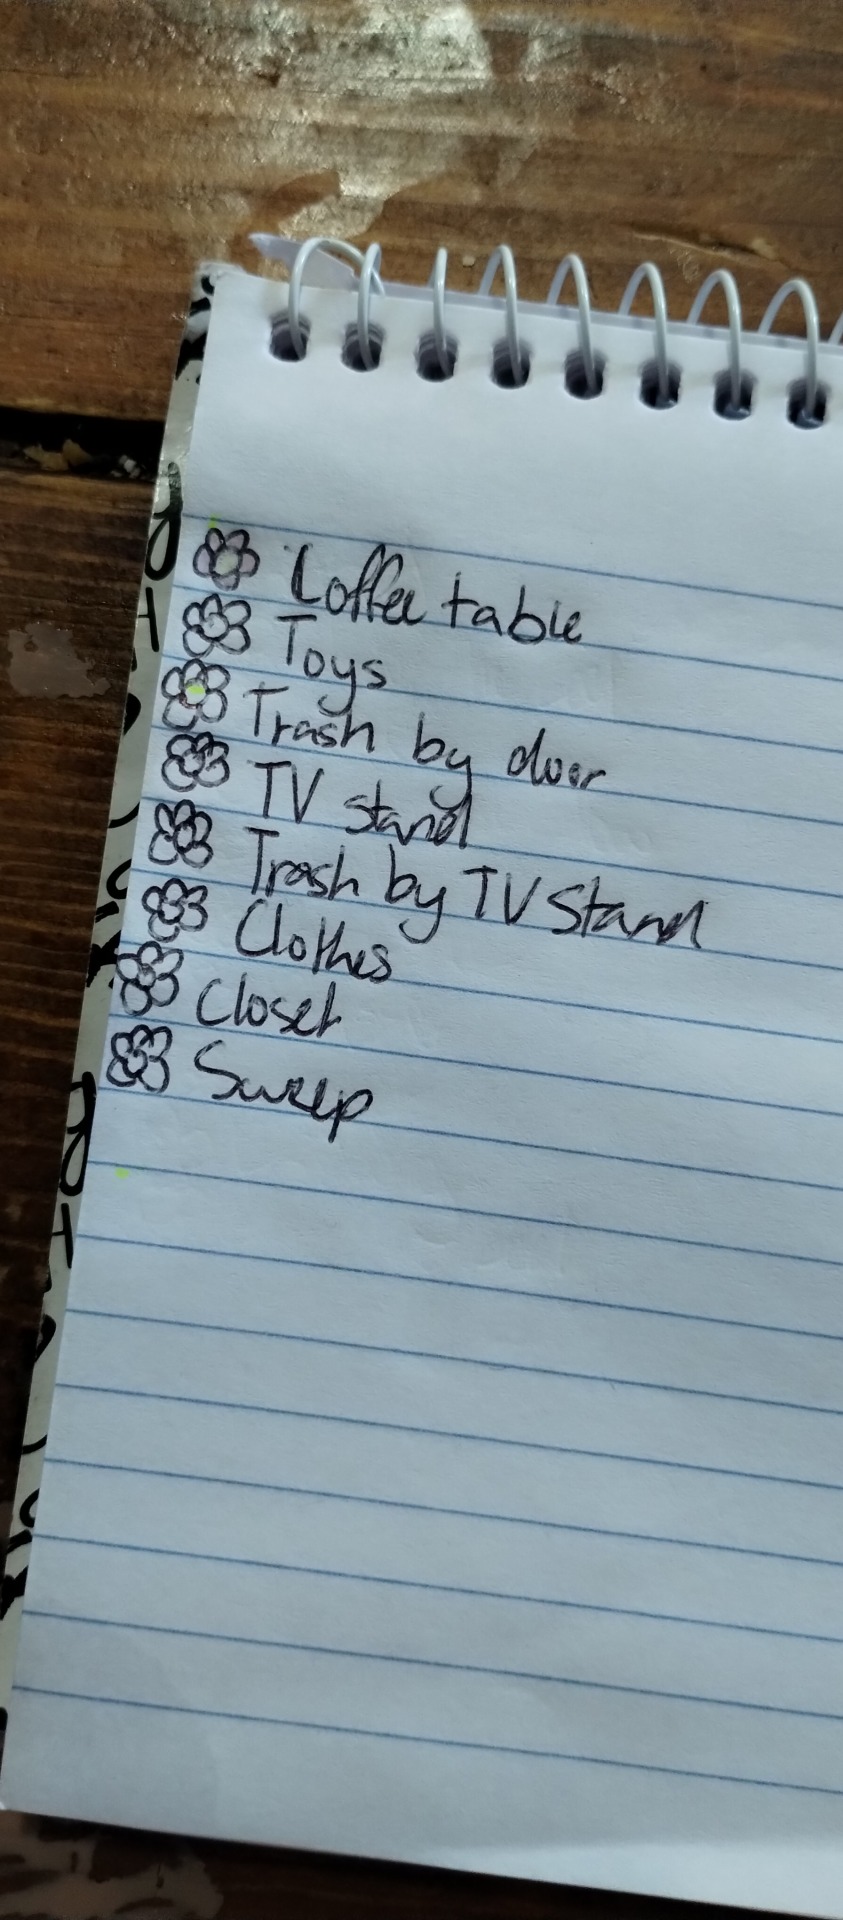 Coffee table
Toys
Trash by door
TV stand
Trash by TV Stand
Clothes
Closet
Sweep